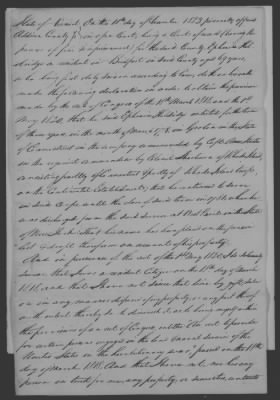 State of Vermont, On the 18th day of December 1823 personally appeared
Addison County Ss in open Court, being a Court of record (having the
power of fine & imprisonment) for the said County, Ephraim Hol-
bridge a resident in Bridport in said County aged 65 years
who being first duly sworn according to law, doth on his oath
make the following declaration in order to obtain the provision
made by the acts of Congress of the 18th March 1818, and the 1st
May 1820, that he said Ephraim enlisted for the term
of three years, on the day of March 177 in Groton in the State
of Connecticut in the company commanded by Capt.
in the regiment commanded by Colonel of Rhode Island
on the Continental Establishment; that he continued to serve
in said Corps until the close of said term in 1780, when he
was discharged from the said service at West Point in the State
of New York that his name has been placed on the pension
list & dropt therefrom on account of his property
And in pursuance of the act of the 1st May 1820, I do solemnly
swear that I was a resident Citizen on the 18th day of March
1818, and that I have not since that time by gift, sale
or in any manner disposed of my property, or any part thereof
with intent thereby so to diminish it, as to bring myself within
the provisions of an act of Congress, entitled "An act to provide
for certain persons engaged in the land & naval service of the
United States in the Revolutionary war," passed on the 18th
day of March 1818. And that I have not, nor has any
person in trust for me any property, or securities, contracts